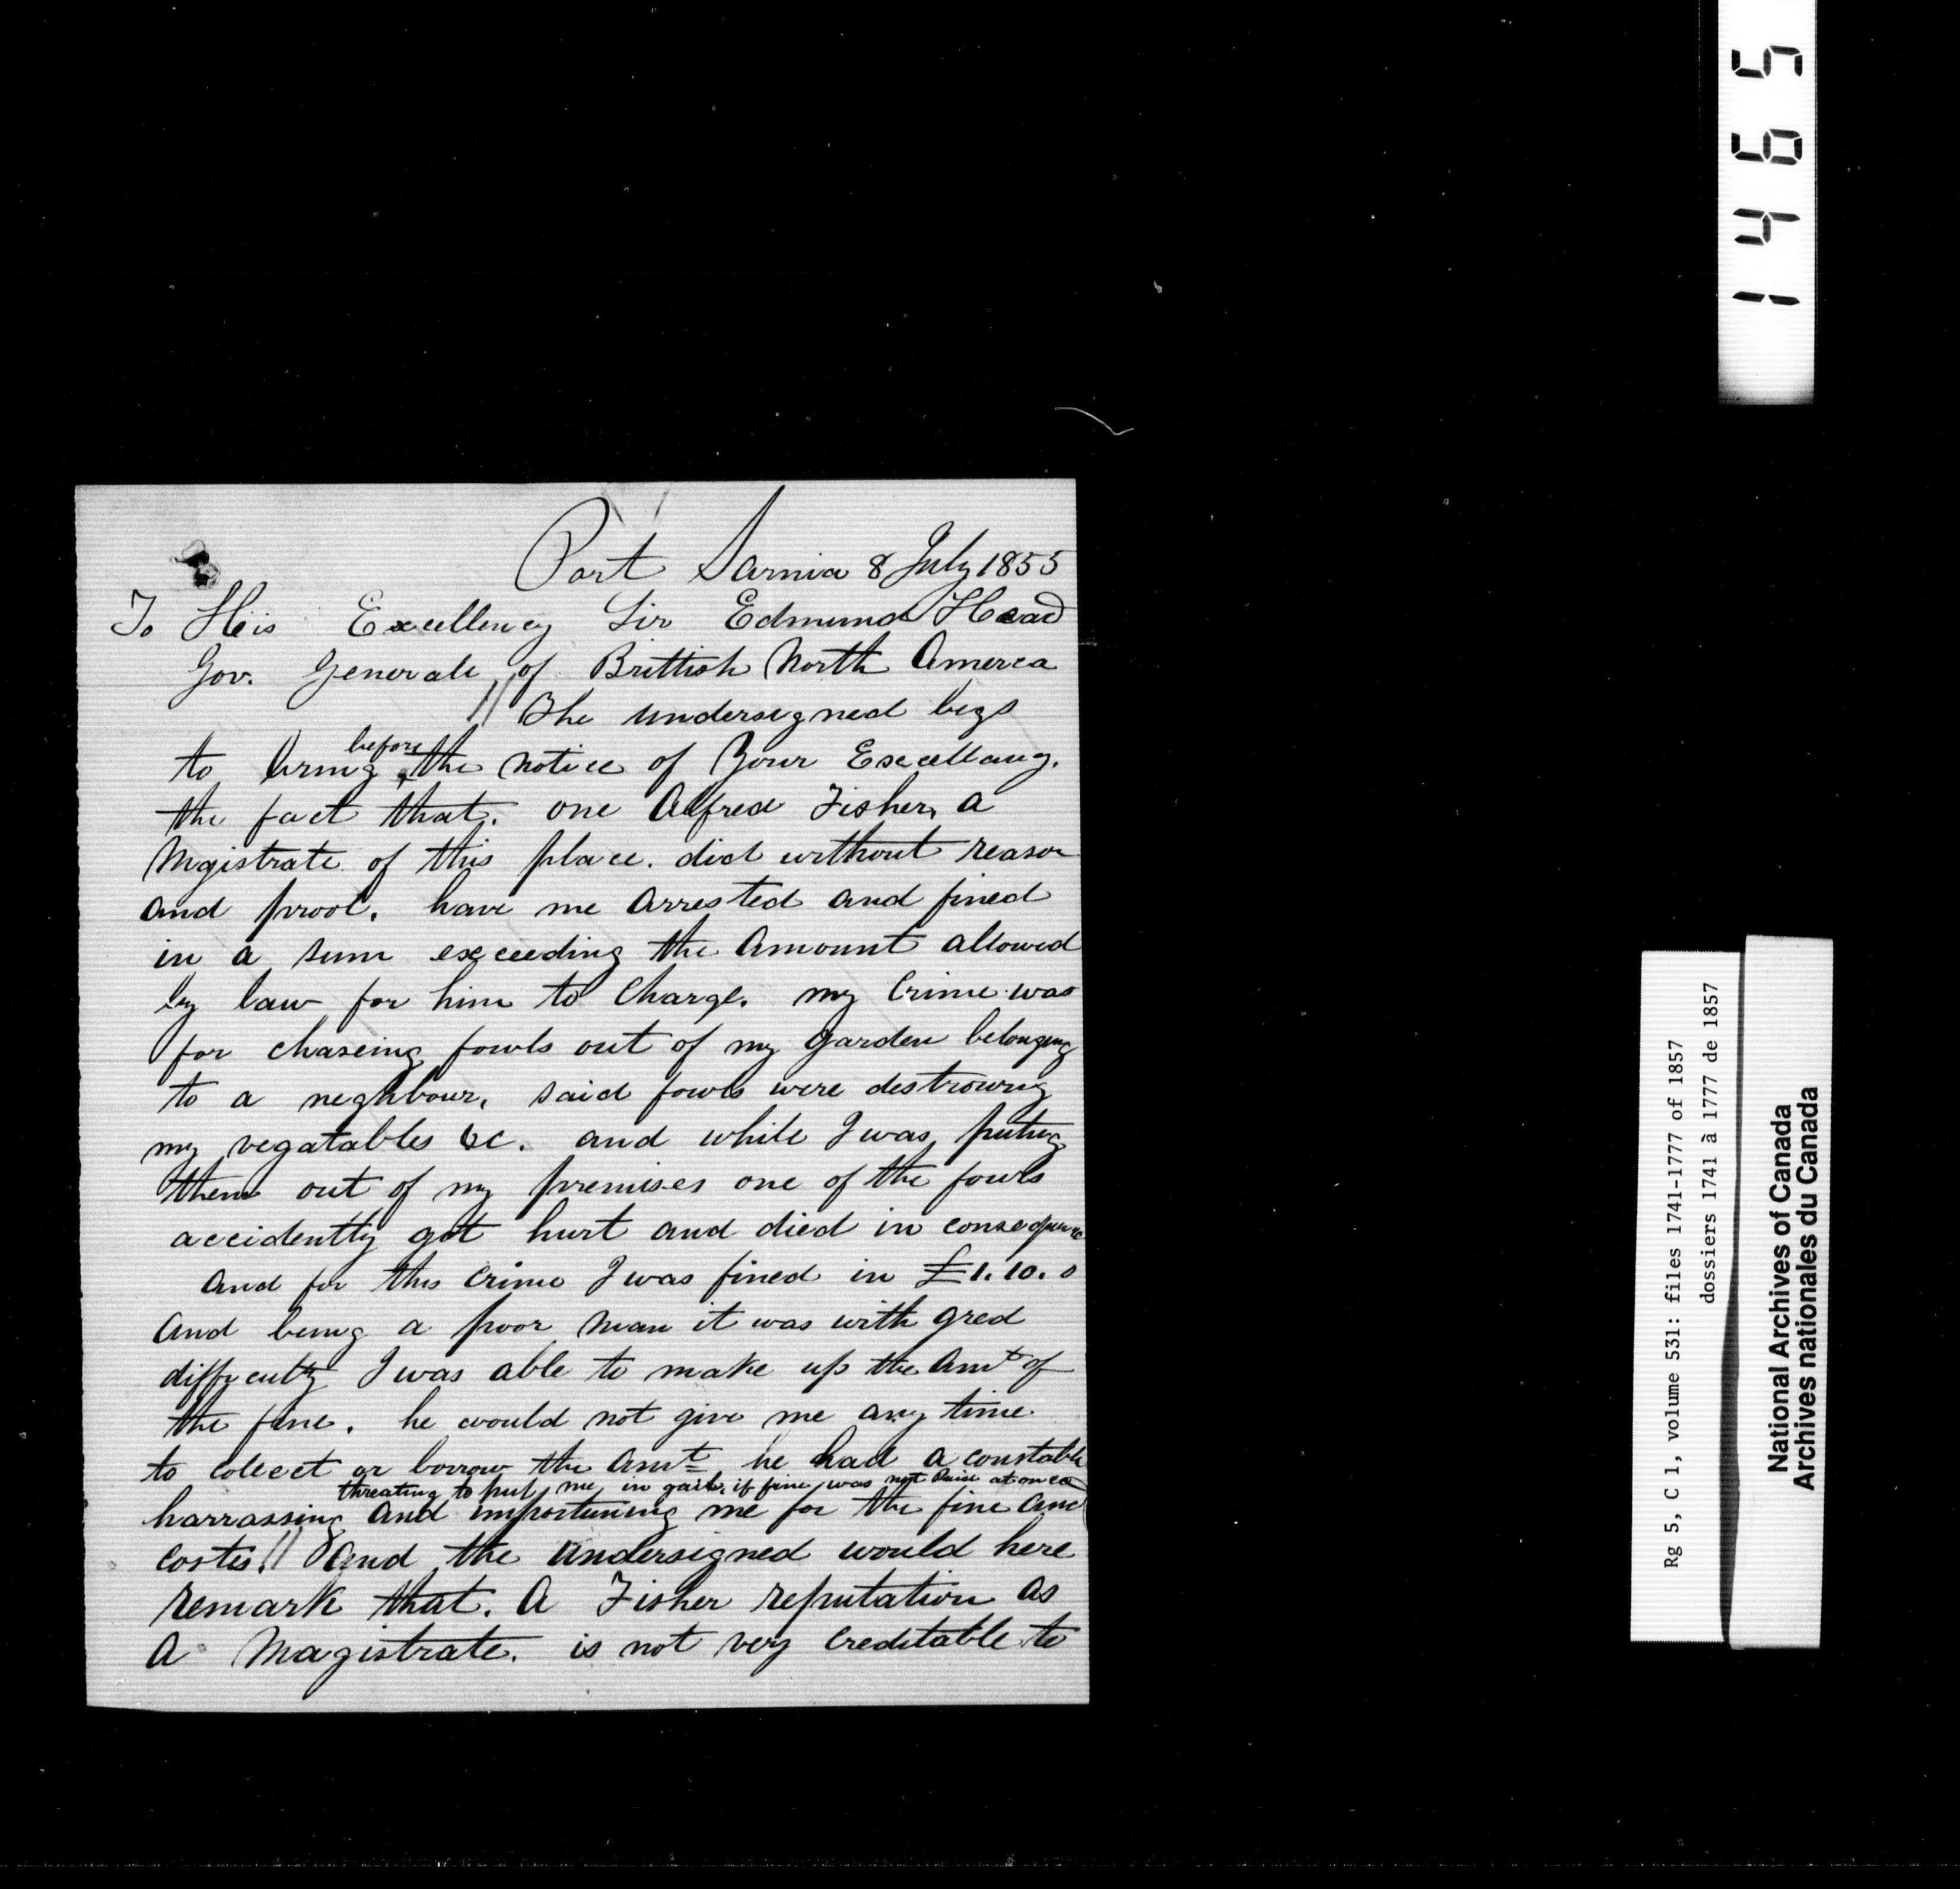 1465
Port Sarnia 8 July 1855
To His Excellency Sir Edmund Head
Gov. Generale, of Brittish North Amerca
// The undersigned begs
to bring before the notice of Your Excellancy.
the fact that. one Alfred Fisher, a
Mgistrate of this place. did without reason
and proof. have me arrested and fined
in a sum exceeding the Amount allowed
by law for him to Charge. my Crime was
for chaseing fowls out of my garden belonging
to a neghbour, said fowls were destrowng
my vegatables &c. and while I was puting
them out of my premises one of the fowls
accidently got hurt and died in consequence
and for this Crime I was fined in £1.10.0
And being a poor man it was with gred
difficulty I was able to make up the Amt of
the fine. he would not give me any time
to colect or borrow the Amt he had a constable
threating to put me in gail, if fine was not Paid at once
harrassing and importuning me for the fine and
costes. // And the undersigned would here
remark that. A Fisher reputation as
A Magistrate. is not very creditable to
Rg 5, C 1, volume 531: files 1741-1777 of 1857
dossiers 1741 à 1777 de 1857
National Archives of Canada
Archives nationales du Canada